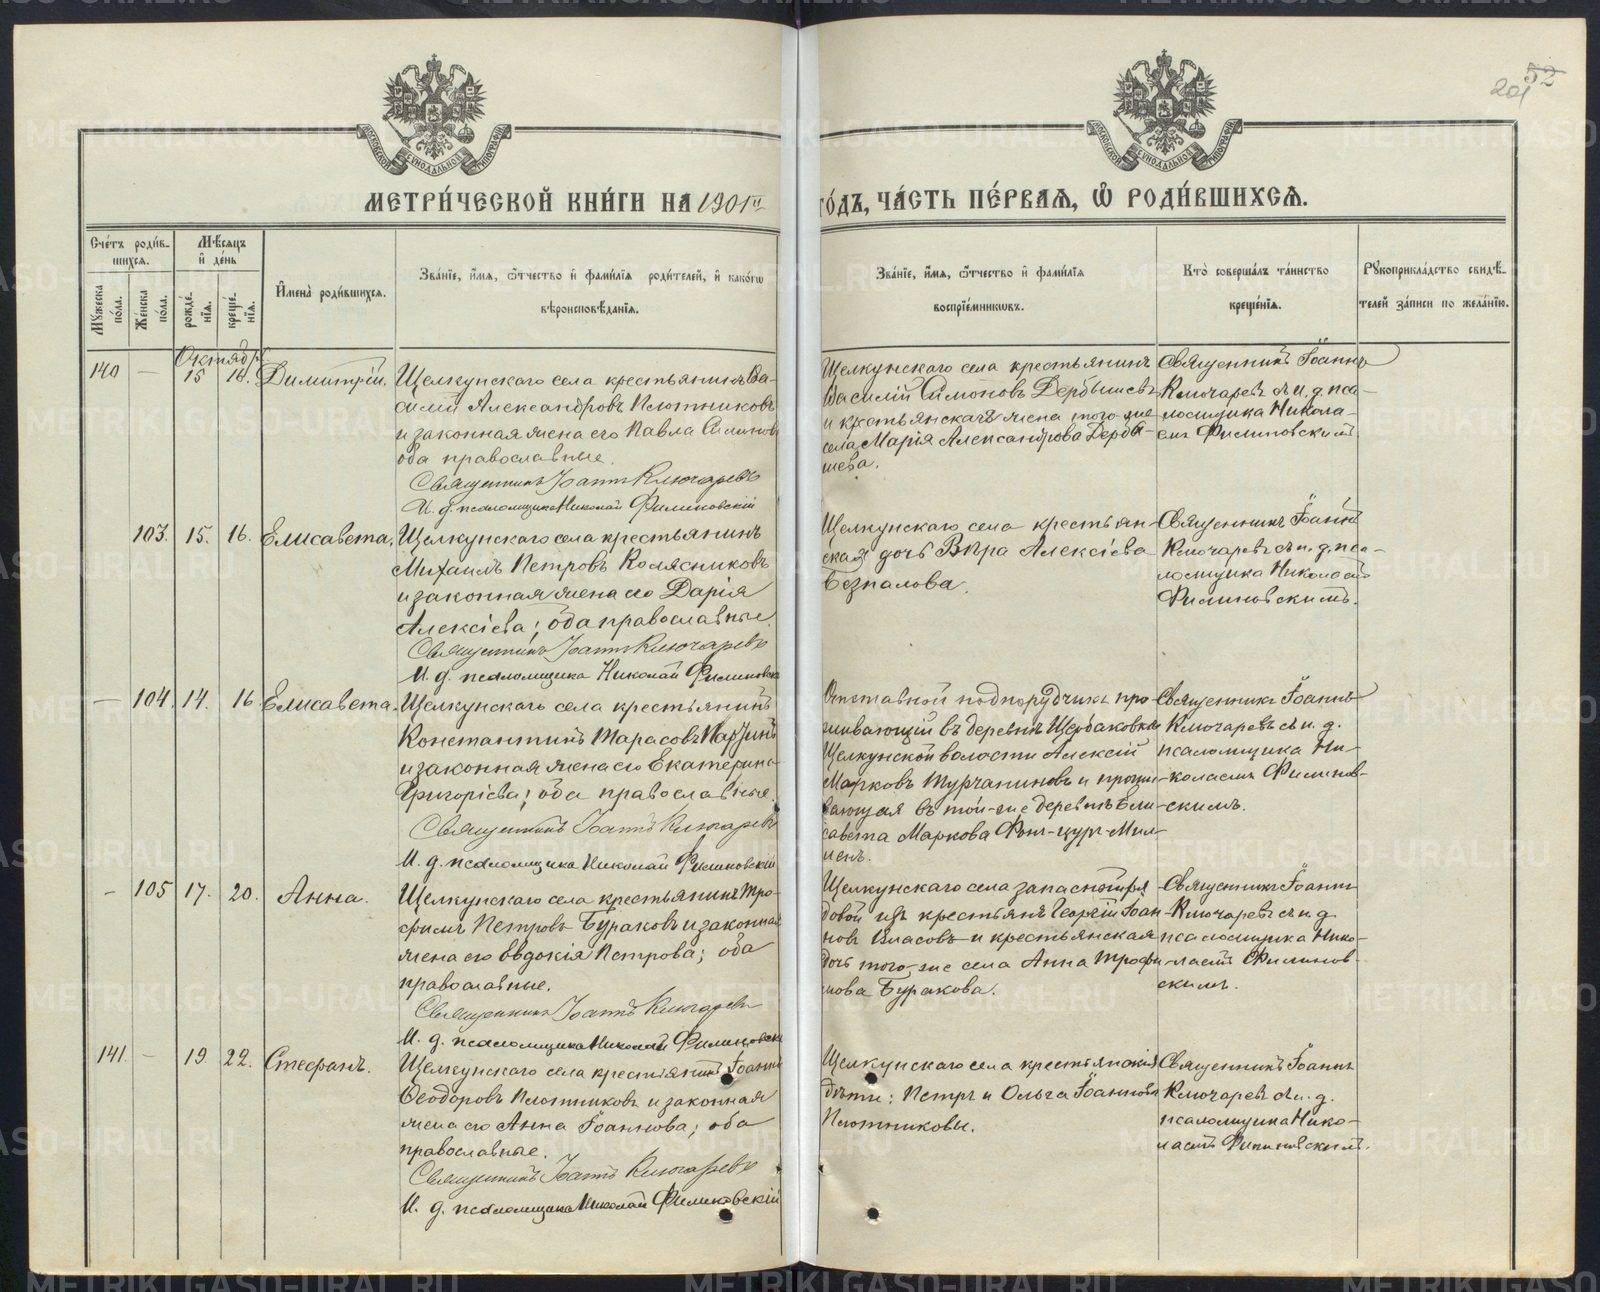 201 52
МОСКОВСКОЙ СѴНОДАЛЬНОЙ ТИПОГРАФІИ
МОСКОВСКОЙ СѴНОДАЛЬНОЙ ТИПОГРАФІИ
МЕТРИ́ЧЕСКОЙ КНИ́ГИ НА 1901й ГО́ДЪ, ЧА́СТЬ ПЕ́РВАѦ, Ѡ РОДИ́ВШИХСѦ.
Сче́тъ роди́в-
шихся.
Мѣ́сяцъ
и҆ де́нь
Му́жеска по́ла.
Же́нска по́ла.
рожде́нїя.
креще́нїя.
И҆мена̀ роди́вшихся.
Зва́нїе, и҆́мя, ѻ҆́тчество и҆ фами́лїя роди́телей, и҆ како́гѡ
вѣроисповѣ́данїя.
Зва́нїе, и҆́мя, ѻ҆́тчество и҆ фами́лїя
воспрїе́мниковъ.
Кто̀ соверша́лъ та́инство
креще́нїя.
Рꙋкоприкла́дство свидѣ́-
телей за́писи по жела́нїю.
Октябрь
140 — 15 16. Димитрій.
Щелкунскаго села крестьянинъ Ва-
силій Александровъ Плотниковъ
и законная жена его Павла Симонова
оба православные.
Священникъ Іоаннъ Ключаревъ
И. д. псаломщика Николай Филиновскій
Щелкунскаго села крестьянинъ
Василій Симоновъ Дербышевъ
и крестьянская жена того-же
села Марія Александрова Дербы-
шева.
Священникъ Іоаннъ
Ключаревъ съ и. д. пса-
ломщика Никола-
емъ Филиновскимъ.
103. 15. 16. Елисавета.
Щелкунскаго села крестьянинъ
Михаилъ Петровъ Колясниковъ
и законная жена его Дарія
Алексіева; оба православные.
Священникъ Іоаннъ Ключаревъ
И. д. псаломщика Николай Филиновскій
Щелкунскаго села крестьян-
ская дочь Вѣра Алексіева
Безпалова.
Священникъ Іоаннъ
Ключаревъ съ и. д. пса-
ломщика Николаемъ
Филиновскимъ.
— 104. 14. 16 Елисавета.
Щелкунскаго села крестьянинъ
Константинъ Тарасовъ
и законная жена его Екатерина
Григоріева; оба православные.
Священникъ Іоаннъ Ключаревъ
И. д. псаломщика Николай Филиновскій
Отставной подпоручикъ про-
живающій въ деревнѣ Щербаковкѣ
Щелкунской волости Алексій
Марковъ Турчаниновъ и прожи-
вающая въ той-же деревнѣ Ели-
савета Маркова Фонъ-цуръ-Мил-
ленъ.
Священникъ Іоаннъ
Ключаревъ съ и. д.
псаломщика Ни-
колаемъ Филинов-
скимъ.
— 105 17. 20. Анна.
Щелкунскаго села крестьянинъ Тро-
фимъ Петровъ Бураковъ и законная
жена его Евдокія Петрова; оба
православные.
Священникъ Іоаннъ Ключаревъ
И. д. псаломщика Николай Филиновскій
Щелкунскаго села запасной ря-
довой изъ крестьянъ Георгій Іоан-
новъ Власовъ и крестьянская
дочь того-же села Анна Трофи-
мова Буракова.
Священникъ Іоаннъ
Ключаревъ съ и. д.
псаломщика Нико-
лаемъ Филинов-
скимъ.
141. — 19 22. Стефанъ.
Щелкунскаго села крестьянинъ Іоаннъ
Ѳеодоровъ Плотниковъ и законная
жена его Анна Іоаннова; оба
православные.
Священникъ Іоаннъ Ключаревъ
И. д. псаломщика Николай Филиновскій
Щелкунскаго села крестьянскія
дѣти: Петръ и Ольга Іоанновы
Плотниковы.
Священникъ Іоаннъ
Ключаревъ съ и. д.
псаломщика Нико-
лаемъ Филиновскимъ.
METRIKI.GASO-URAL.RU